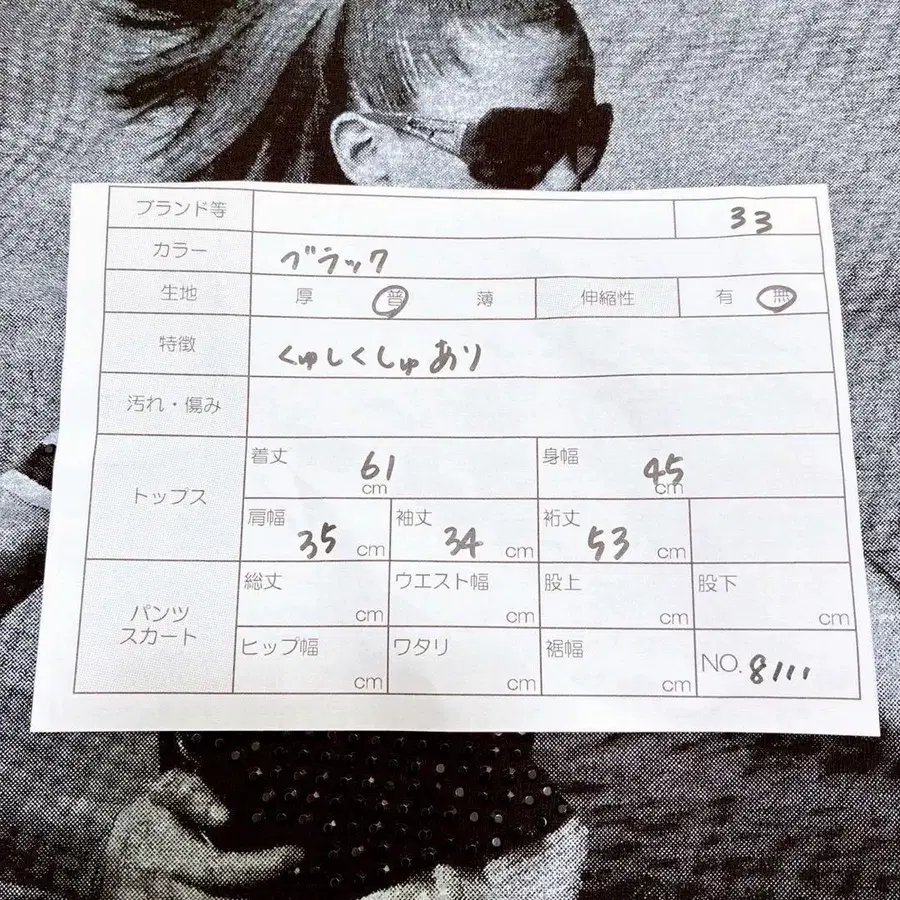 ブランド等 33
カラー ブラック
生地 厚 普 薄 伸縮性 有 無
特徴 くゅしくしゅあり
汚れ・傷み
トップス
着丈 61 cm 身幅 45 cm
肩幅 35 cm 袖丈 34 cm 裄丈 53 cm
パンツ
スカート
総丈 cm ウエスト幅 cm 股上 cm 股下 cm
ヒップ幅 cm ワタリ cm 裾幅 cm NO. 8111